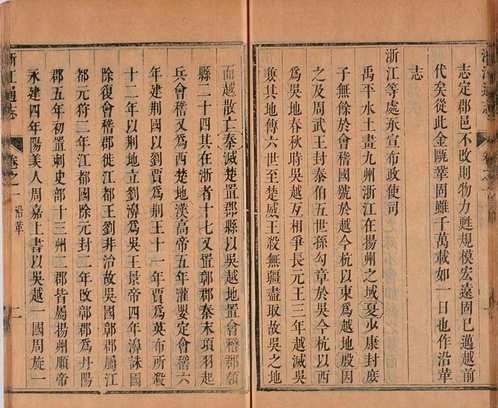 志定郡邑不改則物力甦規模宏遠固已邁越前
代矣從此金甌華固雖千萬載如一日也作沿革
志
浙江等處承宣布政使司
禹平水土畫九州浙江在揚州之域夏少康封庶
子無餘於會稽國號於越今杭以東爲越地
之及周武王封泰伯五世孫勾章於吳今杭以西
爲吳地春秋時吳越相爭長元王三年越滅吳
兼其地傳六世至楚威王殺無疆盡取故吳之地
而越散亡秦滅楚置郡縣以吳越地置會稽郡領
縣二十四其在浙者十七又置鄣郡秦末項羽起
兵會稽又爲西楚地漢高帝五年灌嬰定會稽六
年建荊國以劉賈爲荊王十一年賈爲英布所殺
十二年以荊地立劉濞爲吳王景帝四年濞誅國
除復會稽徙江都王劉非治故吳國鄣郡屬江
都元狩二年江都國除元封二年改鄣郡爲丹陽
郡五年初置刺史部十三州二郡皆屬揚州順帝
永建四年陽羨人周嘉上書以吳越二國周旋一
浙江通志 卷之一 沿革 一